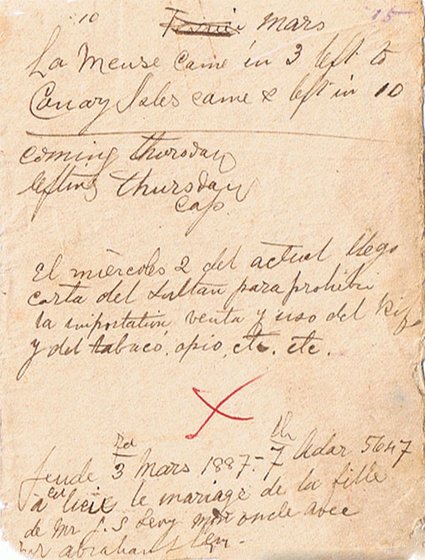 10 Mars 15
La Meuse came in 3 left to
Canary Isles came & left in 10
coming thursday
lefting thursday
cap.
El miércoles 2 del actual llego
carta del Sultan para prohibir
la importation venta y uso del Kif
y del tabaco, opio, etc. etc.
X
Jeudi 3 rd Mars 1887 - 7 th Adar 5647
a eu lieu le mariage de la fille
de Mr J. S. Levy mon oncle avec
abraham Levy.